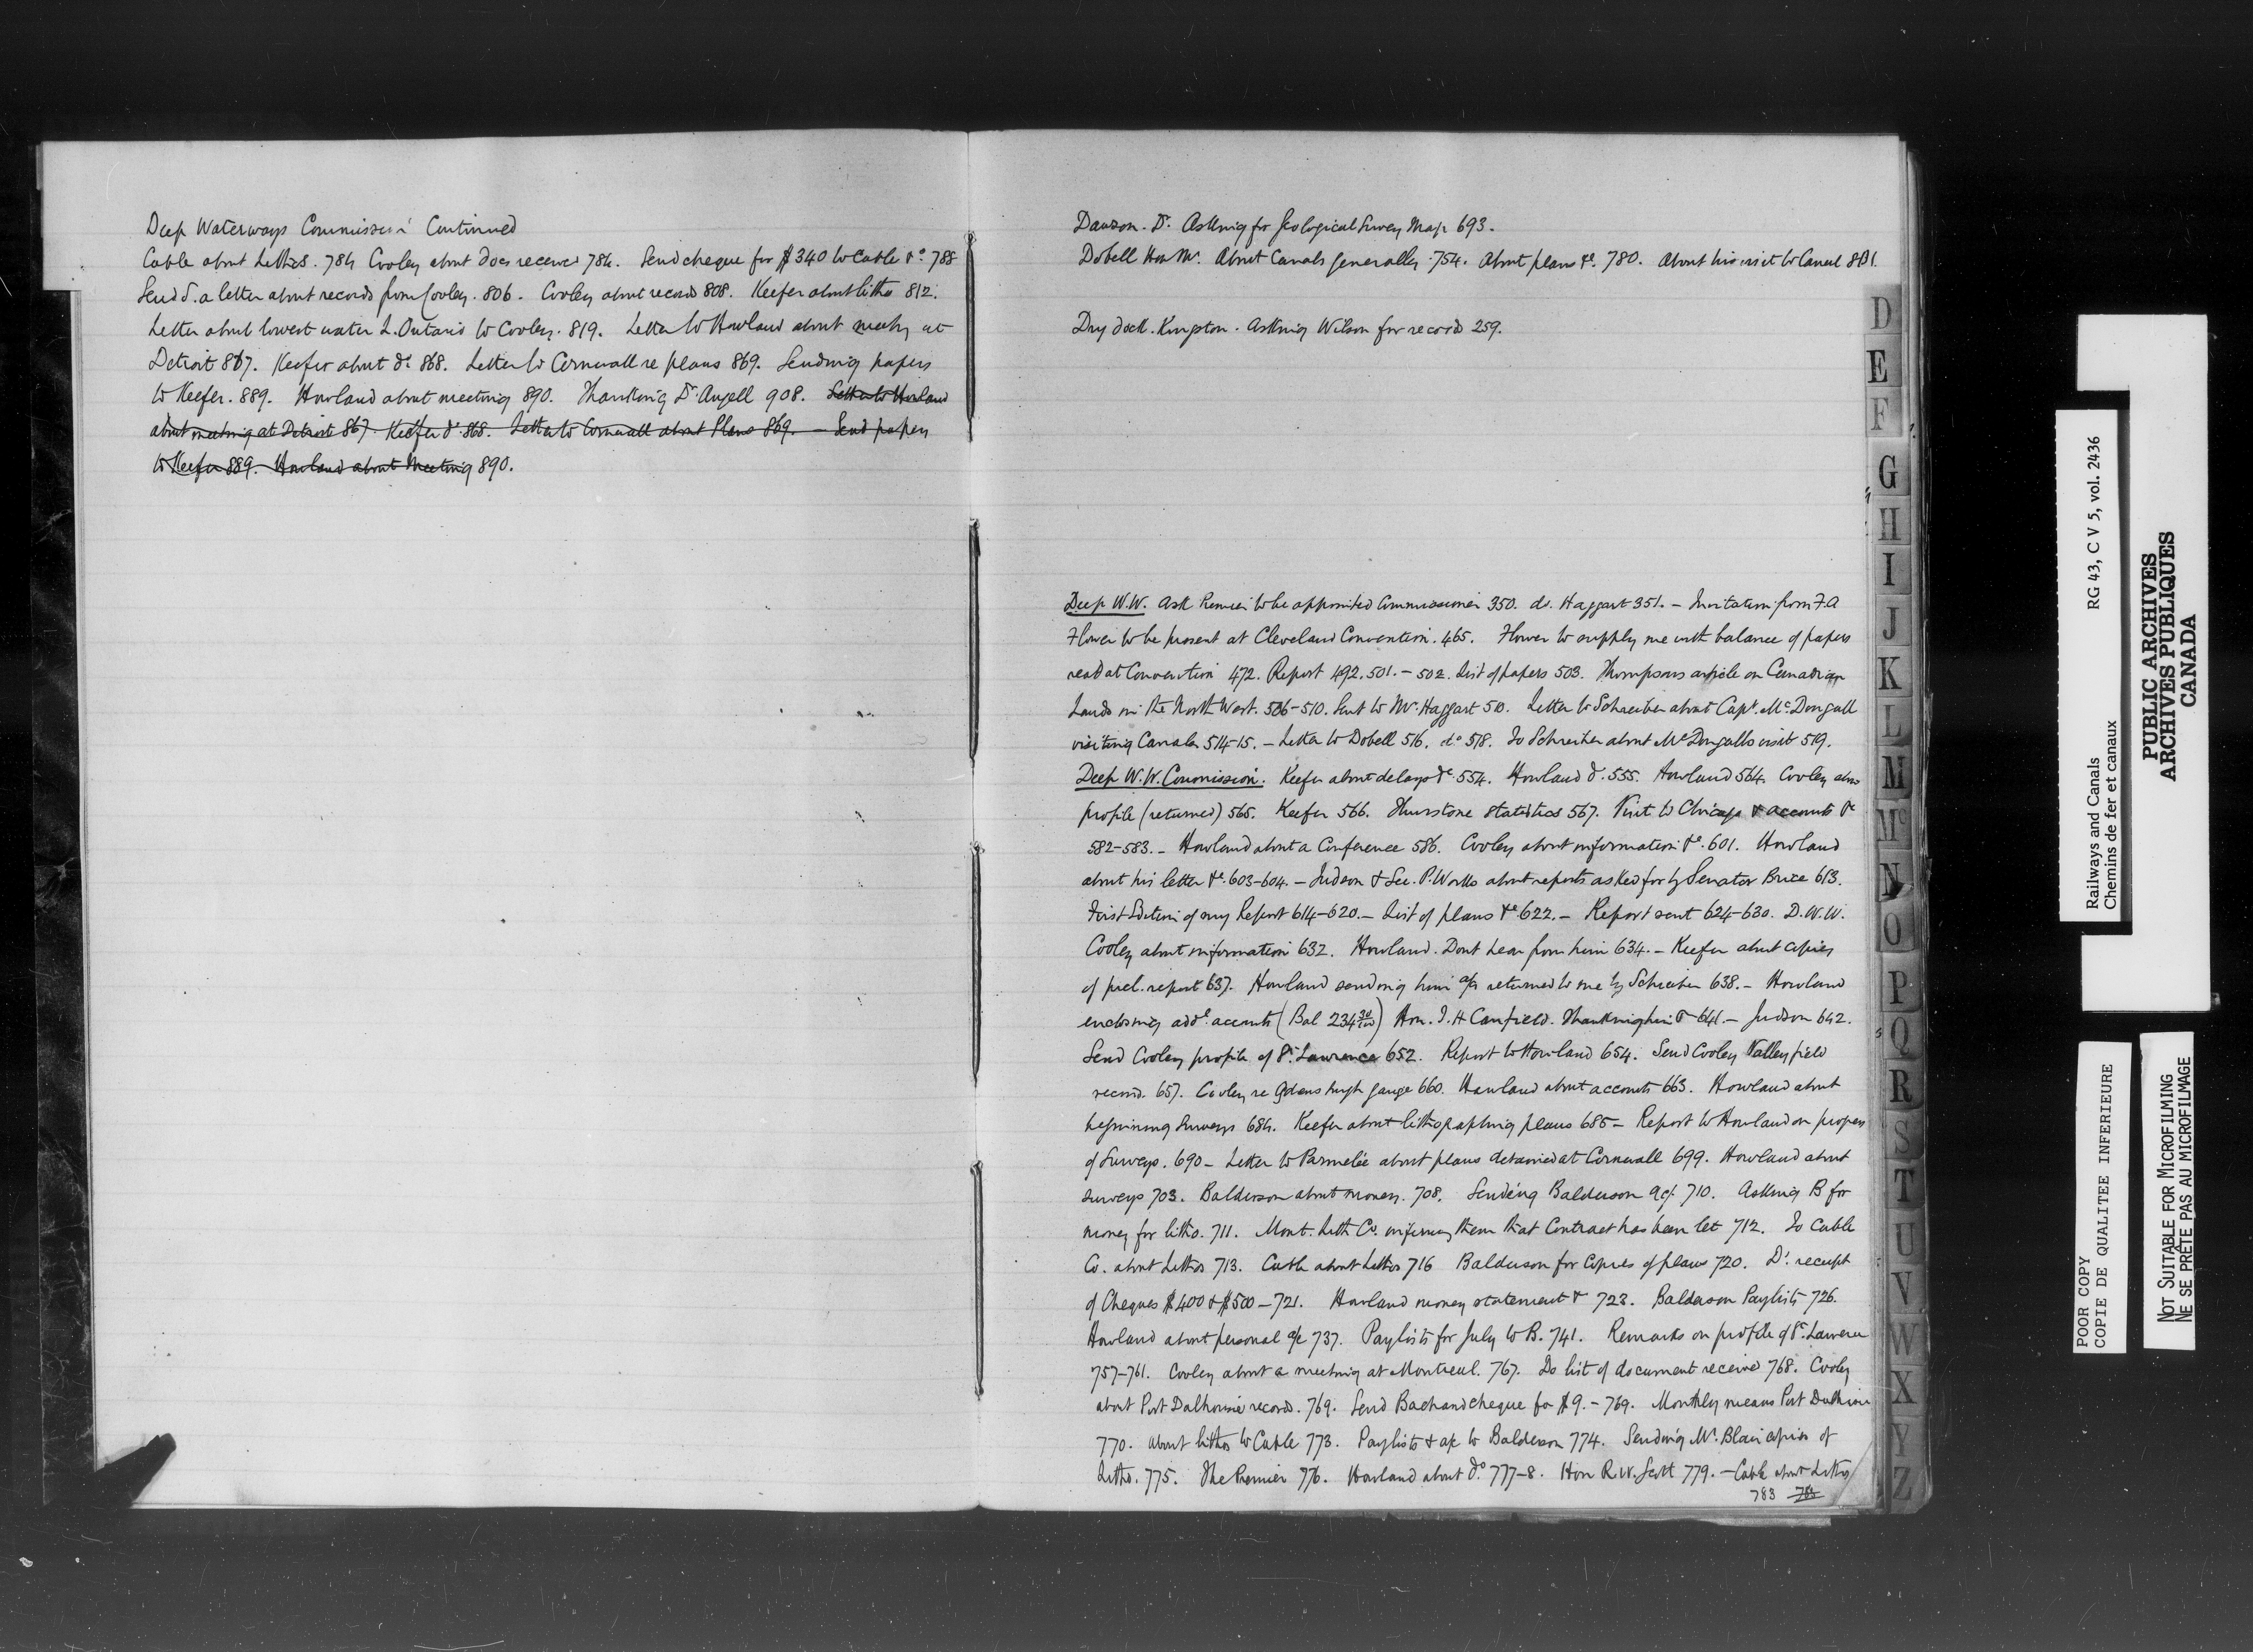 Deep Waterways Commission Continued
Cable about Lithos. 784 Cooley about docs received 784. Send cheque for $340 to Cable &c. 788
Send S. a letter about records from Cooley. 806. Cooley about records 808. Keefer about litho 812.
Letter about lowest water L. Ontario to Cooley. 819. Letter to Howland about meeting at
Detroit 867. Keefer about do 868. Letter to Cornwall re plans 869. Sending papers
to Keefer. 889. Howland about meeting 890. Thanking Dr. Angell 908. Letter to Howland
about meeting at Detroit 867. Keefer do 868. Letter to Cornwall about Plans 869. — Send papers
to Keefer 889. Howland about Meeting 890.
Dawson. Dr. Asking for Geological Survey Map 693.
Dobell Hon Mr. About Canals generally. 754. About plans &c. 780. About his visit to Canal 801.
Dry dock. Kingston. Asking Wilson for records 259.
Deep W.W. Ask Premier to be appointed Commissioner 350. do. Haggart 351. — Invitation from F.A
Flower to be present at Cleveland Convention. 465. Flower to supply me with balance of papers
read at Convention 472. Report 492. 501. — 502. List of papers 503. Thompsons article on Canadian
Lands in the North West. 506-510. Sent to Mr. Haggart 510. Letter to Schreiber about Capt. McDougall
visiting Canals 514-15. — Letter to Dobell 516. do 518. To Schreiber about McDougalls visit 519.
Deep W.W. Commission. Keefer about delays &c. 554. Howland do. 555. Howland 564. Cooley about
profile (returned) 565. Keefer 566. Thurstone statistics 567. Visit to Chicago & accounts &c
582-583. — Howland about a Conference 586. Cooley about information &c. 601. Howland
about his letter &c. 603-604. — Judson & Sec. P. Works about reports asked for by Senator Brice 613.
First Edition of my Report 614-620. — List of plans &c 622. — Report sent 624-630. D.W.W.
Cooley about information 632. Howland. Dont hear from him 634. — Keefer about copies
of prel. report 637. Howland sending him a/c returned to me by Schreiber 638. — Howland
enclosing addl. accounts (Bal 234 30/100) Hon. J. H Canfield. Thanking him & 641. — Judson 642.
Send Cooley profile of St. Lawrence 652. Report to Howland 654. Send Cooley Valleyfield
records. 657. Cooley re Ogdensburgh gauge 660. Howland about accounts 663. Howland about
beginning Surveys 684. Keefer about lithographing plans 685 — Report to Howland on progress
of Surveys. 690 — Letter to Parmelée about plans detained at Cornwall 699. Howland about
surveys 703. Balderson about money. 708. Sending Balderson a/c. 710. Asking B for
money for litho. 711. Mont. Lith Co. informing them that Contract has been let 712. To Cable
Co. about Lithos 713. Cable about Lithos 716 Balderson for Copies of plans 720. Do. receipt
of Cheques $400 & $500 — 721. Howland money statement & 723. Balderson Paylists 726.
Howland about personal a/c 737. Paylists for July to B. 741. Remarks on profile of St. Lawrence
757-761. Cooley about a meeting at Montreal. 767. Do list of document received 768. Cooley
about Port Dalhousie records. 769. Send Bachand cheque for $9. — 769. Monthly means Port Dalhousie
770. About lithos to Cable 773. Paylists & a/c to Balderson 774. Sending Mr. Blair copies of
Litho. 775. The Premier 776. Howland about do. 777-8. Hon R.W. Scott 779. — Cable about Lithos
783 783
D
E
F
G
H
I
J
K
L
M
Mc
N
O
P
Q
R
S
T
U
V
W
X
Y
Z
RG 43, C V 5, vol. 2436
Railways and Canals
Chemins de fer et canaux
PUBLIC ARCHIVES
ARCHIVES PUBLIQUES
CANADA
POOR COPY
COPIE DE QUALITEE INFERIEURE
NOT SUITABLE FOR MICROFILMING
NE SE PRÊTE PAS AU MICROFILMAGE